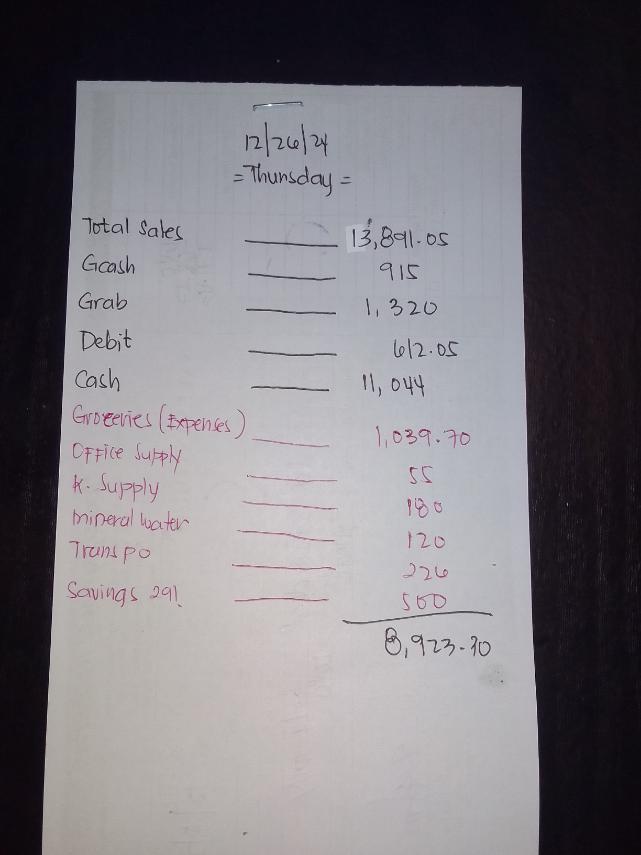 12/26/24
= Thursday =
Total Sales 13,891.05
Gcash 915
Grab 1,320
Debit 612.05
Cash 11,044
Groceries (Expenses) 1,039.70
Office Supply 55
K. Supply 180
Mineral water 120
Transpo 226
Savings 500
8,923.30